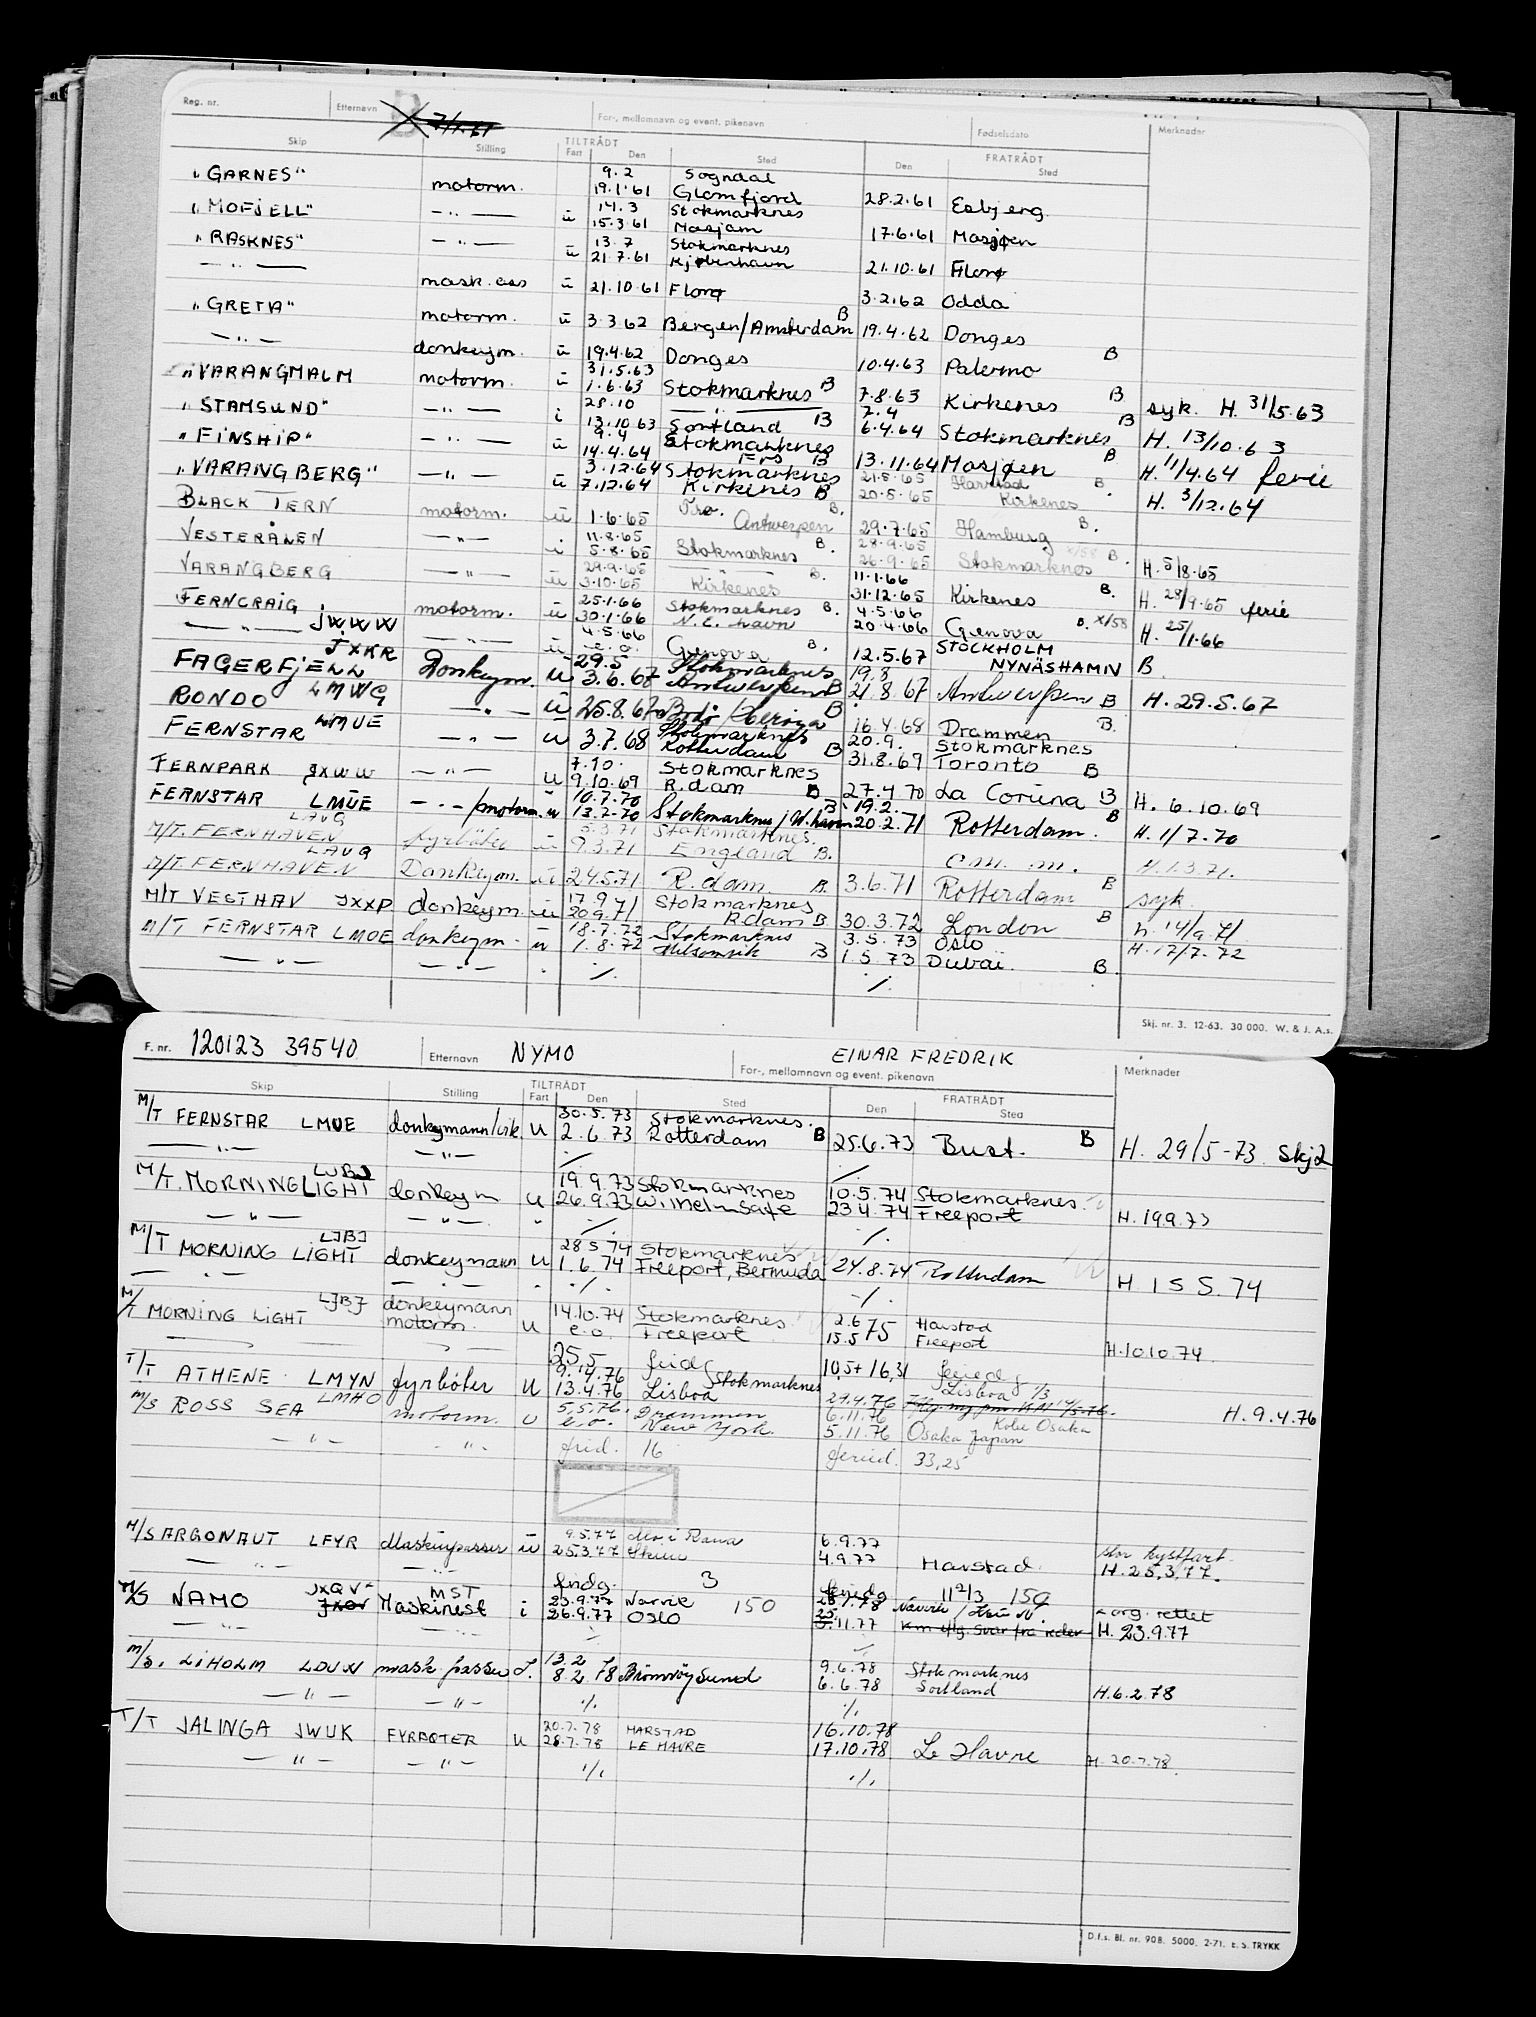 Reg. nr. Etternavn 7/1.61 For-, mellomnavn og event. pikenavn Fødselsdato Merknader
Skip Stilling TILTRÅDT Fart Den Sted FRATRÅDT Den Sted
"GARNES" motorm. 9.2 Sogndal
19.1.61 Glomfjord 28.2.61 Esbjerg.
"MOFJELL" — " — u 14.3 Stokmarknes
15.3.61 Mosjøen 17.6.61 Mosjøen
"RASKNES" — " — u 13.7 Stokmarknes
21.7.61 Kjøbenhavn 21.10.61 Florø
— " — mask.ass u 21.10.61 Florø 3.2.62 Odda
"GRETA" motorm. u 3.3.62 Bergen/Amsterdam B 19.4.62 Donges
— " — donkeym. u 19.4.62 Donges 10.4.63 Palermo B
"VARANGMALM motorm. u 31.5.63
1.6.63 Stokmarknes B 7.8.63 Kirkenes B syk. H. 31/5.63
"STAMSUND" — " — i 28.10 — " — 7.4
13.10.63 Sortland B 6.4.64 Stokmarknes B H. 13/10.63
"FINSHIP" — " — u 9.4 Stokmarknes
14.4.64 B 13.11.64 Mosjøen B H. 11/4.64 ferie
"VARANGBERG" — " — u 3.12.64 Stokmarknes 21.5.65 Harstad B
7.12.64 Kirkenes B 20.5.65 Kirkenes H. 3/12.64
BLACK TERN motorm. u 1.6.65 Antwerpen B. 29.7.65 Hamburg B.
VESTERÅLEN — " — i 11.8.65 28.9.65
5.8.65 Stokmarknes B. 26.9.65 Stokmarknes B. H. 5/8.65
VARANGBERG — " — u 29.9.65 — " — B. 11.1.66
3.10.65 Kirkenes 31.12.65 Kirkenes B. H. 28/9.65 ferie
FERNCRAIG JWWW motorm. u 25.1.66 Stokmarknes B. 4.5.66
30.1.66 N.E. havn 20.4.66 Genova B. X/58 H. 25/1.66
— " — JXKR — " — u 4.5.66
e.o. Genova B. 12.5.67 STOCKHOLM
FAGERFJELL Donkeym. u 29.5 Stokmarknes 19.8 NYNÄSHAMN B
3.6.67 Antwerpen B 21.8.67 Antwerpen B H. 29.5.67
RONDO LMWG — " — u 25.8.67 Bodø/Herøya B 16.4.68 Drammen B.
FERNSTAR LMUE — " — u Stokmarknes 20.9. Stokmarknes
3.7.68 Rotterdam B 31.8.69 Toronto B
FERNPARK JXWW — " — u 7.10. Stokmarknes
9.10.69 R.dam B 27.4.70 La Coruna B H. 6.10.69
FERNSTAR LMUE — " — /motorm. u 10.7.70 B 19.2.
13.7.70 Stokmarknes/W.haven 20.2.71 Rotterdam. B H. 1/7.70
M/T. FERNHAVEN LAVG fyrbøter u 5.3.71 Stokmarknes.
9.3.71 England B. em. m. H. 1.3.71.
M/T. FERNHAVEN LAVG Donkeym. u 24.5.71 R.dam. B. 3.6.71 Rotterdam B syk.
M/T VESTHAV JXXP donkeym u 17.9.71 Stokmarknes
20.9.71 R.dam B 30.3.72 London B h. 14/9.71
M/T FERNSTAR LMUE donkeym. u 18.7.72 Stokmarknes 3.5.73 Oslo H. 17/7.72
1.8.72 Melsomvik B 1.5.73 Dubai. B.
— " — — " — . ./. ./.
Skj. nr. 3. 12-63. 30 000. W. & J. A.s.
F. nr. 120123 39540 Etternavn NYMO EINAR FREDRIK
For-, mellomnavn og event. pikenavn Merknader
Skip Stilling TILTRÅDT Fart Den Sted FRATRÅDT Den Sted
M/T FERNSTAR LMUE donkeymann/vik. u 30.5.73 Stokmarknes.
2.6.73 Rotterdam B 25.6.73 Bust. B H. 29/5-73 Skj2
— " — — " — ./. ./.
M/T. MORNINGLIGHT LJBJ donkeym u 19.9.73 Stokmarknes 10.5.74 Stokmarknes
26.9.73 Wilhelmsafe 23.4.74 Freeport H. 19.9.73
— " — — " — " ./. ./.
M/T MORNING LIGHT LJBJ donkeymann u 28.5.74 Stokmarknes
1.6.74 Freeport, Bermuda 24.8.74 Rotterdam H 15.5.74
— " — — " — ./. ./.
M/T MORNING LIGHT LJBJ donkeymann 14.10.74 Stokmarknes 2.6 Harstad
motorm. u e.o. Freeport 15.5 75 Freeport H.10.10.74.
25,5 frid 10,5+16,31 feried
T/T ATHENE LMYN fyrbøter u 9.4.76 Stokmarknes Lisboa 1/3
13.4.76 Lisboa 29.4.76 H. 9.4.76
M/S ROSS SEA LMHO motorm. u 5.5.76. Drammen 6.11.76 Kobe Osaka
e.o. New York. 5.11.76 Osaka Japan
— " — — " — frid. 16 feried. 33,25
M/S ARGONAUT LFYR Maskinpasser u 9.5.77 Mo i Rana 6.9.77 stor kystfart.
25.3.77 Skien 4.9.77 Harstad. H. 25.3.77.
— " — — " — fridg. 3 feriedg 11 2/3 150
M/S NAMO JXQV MST Maskinest i 23.9.77 Narvik 150
26.9.77 Oslo 11.77 org. rettet
— " — — " — ./. H. 23.9.77
M/S. LIHOLM LDUN mask passer I. 13.2 9.6.78 Stokmarknes
8.2.78 Brønnøysund 6.6.78 Sortland H.6.2.78
— " — — " — ./. ./.
T/T JALINGA JWUK FYRBØTER u 20.7.78 HARSTAD 16.10.78
28.7.78 LE HAVRE 17.10.78 Le Havre H. 20.7.78.
— " — — " — ./. ./.
D.f.s. Bl. nr. 908. 5000. 2-71. E. S. TRYKK